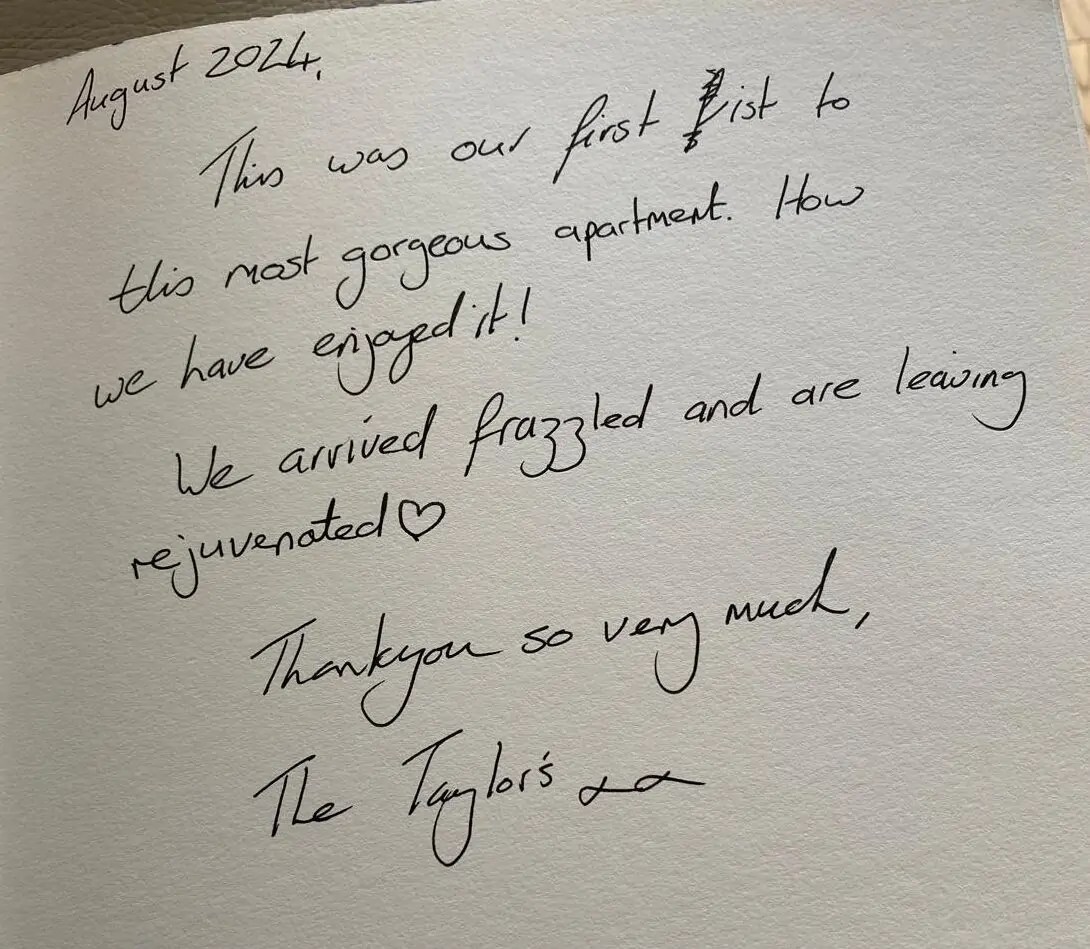 August 2024.
This was our first vist to
this most gorgeous apartment. How
we have enjoyed it!
We arrived frazzled and are leaving
rejuvenated♡
Thankyou so very much,
The Taylor's xx